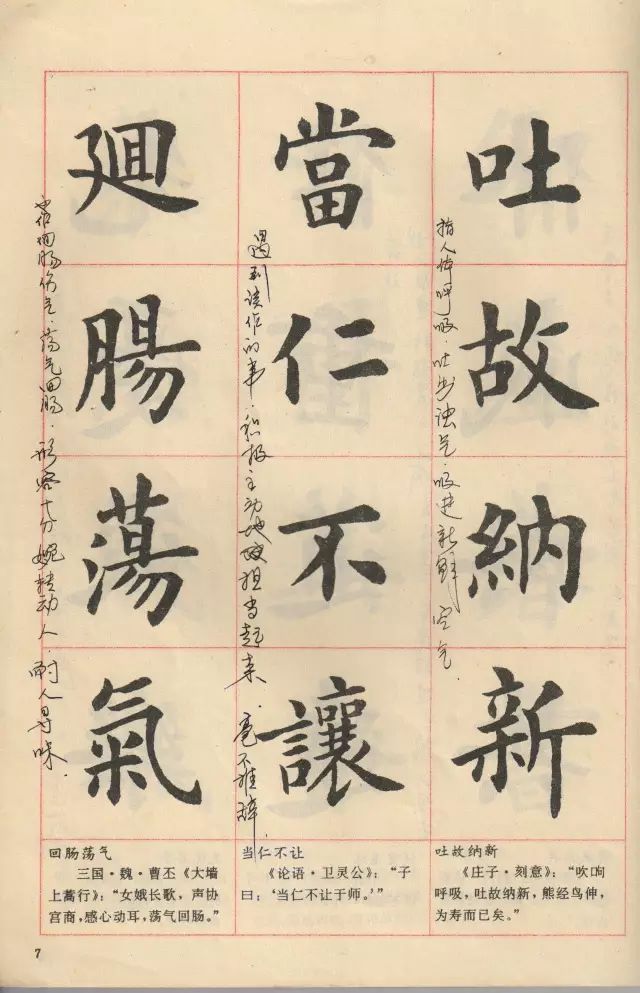 吐故納新
指人体呼吸.吐出浊气.吸进新鲜空气.
當仁不讓
遇到该作的事.积极主动地担当起来.毫不推辞.
廻腸蕩氣
也作回肠伤气.荡气回肠.形容十分婉转动人.耐人寻味.
吐故纳新
《庄子·刻意》:“吹呴
呼吸,吐故纳新,熊经鸟伸,
为寿而已矣。”
当仁不让
《论语·卫灵公》:“子
曰:‘当仁不让于师。’”
回肠荡气
三国·魏·曹丕《大墙
上蒿行》:“女娥长歌,声协
宫商,感心动耳,荡气回肠。”
7